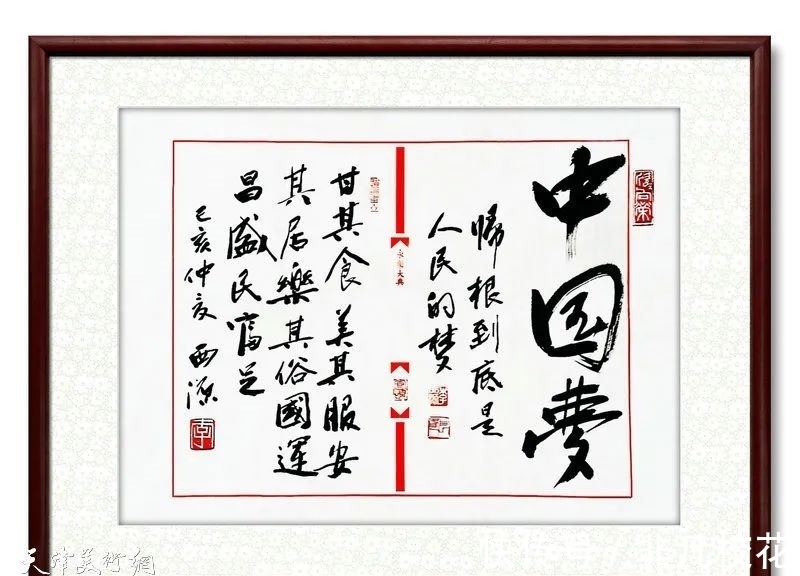 中国夢
歸根到底是
人民的梦
永樂大典
甘其食美其服安
其居樂其俗國運
昌盛民富足
己亥仲夏 西源
李
天津美術網